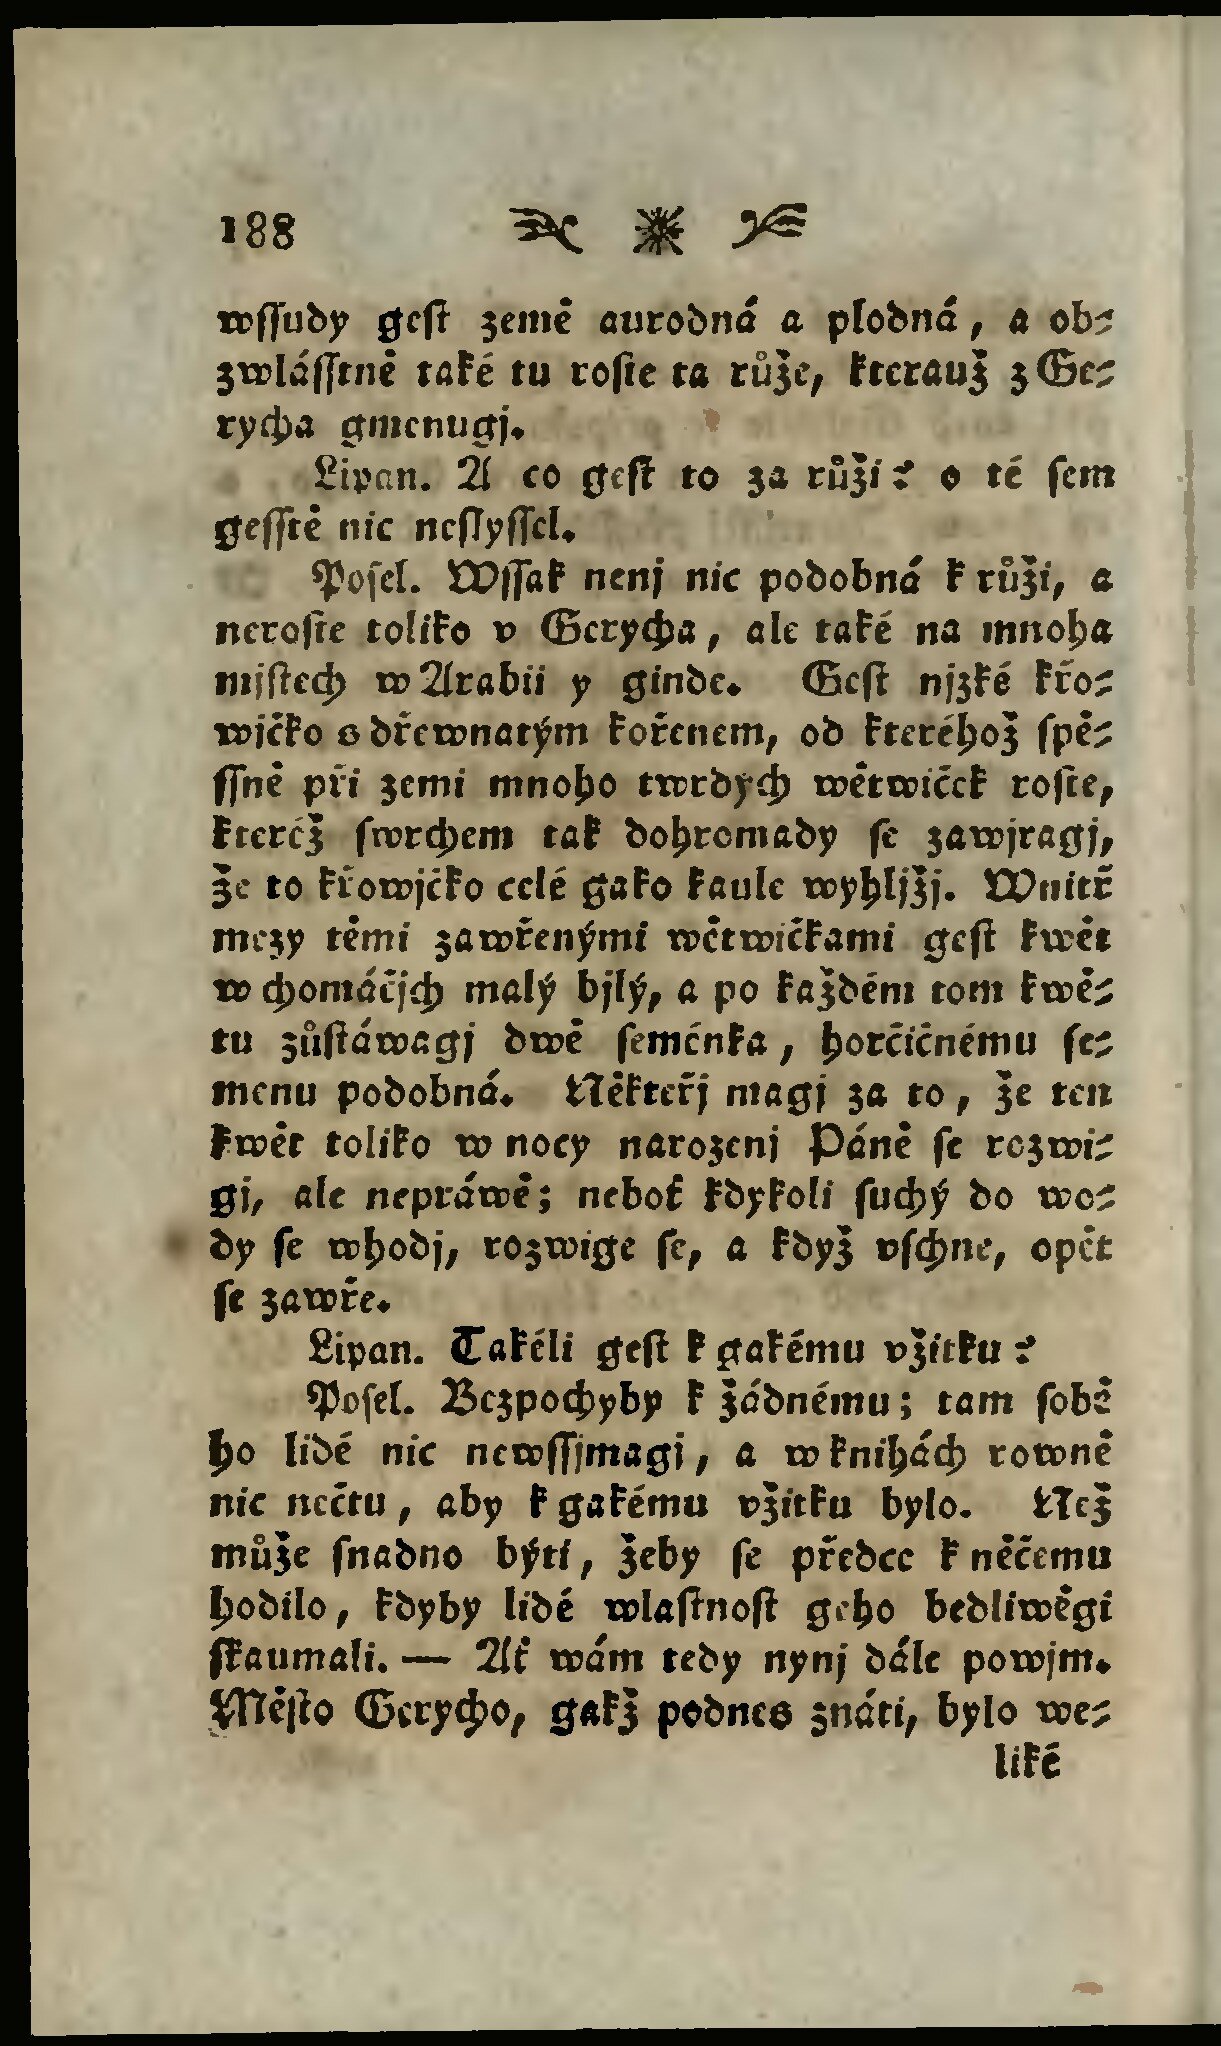 188
wſſudy geſt země aurodná a plodná, a ob-
zwláſſtně také tu roſte ta růže, kterauž z Ge-
rycha gmenugj.
Lipan. A co geſt to za růži? o té ſem
geſſtě nic neſlyſſel.
Poſel. Wſſak nenj nic podobná k růži, a
neroſte toliko v Gerycha, ale také na mnoha
mjſtech w Arabii y ginde. Geſt njzké křo-
wjčko s dřewnatým kořenem, od kteréhož ſpě-
ſſně při zemi mnoho twrdých wětwiček roſte,
kteréž ſwrchem tak dohromady ſe zawjragj,
že to křowjčko celé gako kaule wyhljžj. Wnitř
mezy těmi zawřenými wětwičkami geſt kwět
w chomáčjch malý bjlý, a po každém tom kwě-
tu zůſtáwagj dwě ſeménka, horčičnému ſe-
menu podobná. Někteřj magj za to, že ten
kwět toliko w nocy narozenj Páně ſe rozwi-
gj, ale nepráwě; neboť kdykoli ſuchý do wo-
dy ſe whodj, rozwige ſe, a když vſchne, opět
ſe zawře.
Lipan. Takéli geſt k gakému vžitku?
Poſel. Bezpochyby k žádnému; tam ſobě
ho lidé nic newſſjmagi, a w knihách rowně
nic nečtu, aby k gakému vžitku bylo. Než
může ſnadno býti, žeby ſe předce k něčemu
hodilo, kdyby lidé wlaſtnoſt geho bedliwěgi
ſkaumali. — Ať wám tedy nynj dále powjm.
Měſto Gerycho, gakž podnes znáti, bylo we-
liké